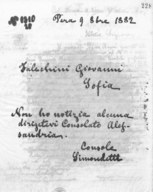 224
No 1910
Pera 9 8bre 1882
Falechini Giovanni
Sofia
Non ho notizia alcuna
dirigetevi Consolato Ales-
sandria.
Console
Simondetti